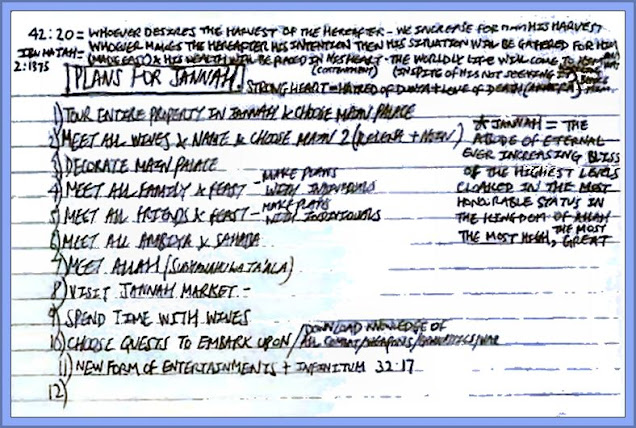 42:20 = WHOEVER DESIRES THE HARVEST OF THE HEREAFTER - WE INCREASE FOR HIM HIS HARVEST
IBN MAJAH = WHOEVER MAKES THE HEREAFTER HIS INTENTION THEN HIS SITUATION WILL BE GATHERED FOR HIM
2:1375 (MADE EASY) & HIS WEALTH WILL BE PLACED IN HIS HEART - THE WORLDLY LIFE WILL COME TO HIM
(CONTENTMENT) (IN SPITE OF HIS NOT SEEKING
PLANS FOR JANNAH
- STRONG HEART = HATRED OF DUNYA + LOVE OF DEATH
1) TOUR ENTIRE PROPERTY IN JANNAH & CHOOSE MAIN PALACE
2) MEET ALL WIVES & NAME & CHOOSE MAIN 2
3) DECORATE MAIN PALACE
4) MEET ALL FAMILY & FEAST - MAKE PLANS WITH INDIVIDUALS
5) MEET ALL FRIENDS & FEAST - MAKE PLANS WITH INDIVIDUALS
6) MEET ALL AMBIYA & SAHABA
7) MEET ALLAH (SUBHANAHUWATA'ALA)
8) VISIT JANNAH MARKET -
9) SPEND TIME WITH WIVES
10) CHOOSE QUESTS TO EMBARK UPON / DOWNLOAD KNOWLEDGE OF ALL COMBAT/WEAPONS/
11) NEW FORM OF ENTERTAINMENTS + INFINITUM 32:17
12)
* JANNAH = THE
ABODE OF ETERNAL
EVER INCREASING BLISS
OF THE HIGHEST LEVELS
CLOAKED IN THE MOST
HONOURABLE STATUS IN
THE KINGDOM OF ALLAH
THE MOST HIGH, THE MOST GREAT